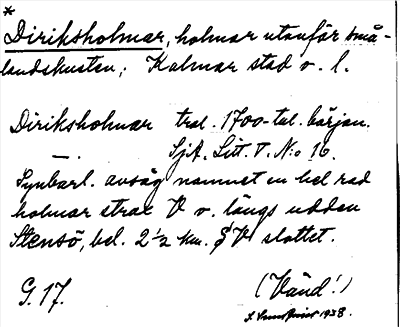 *
Diriksholmar, holmar utanför små-
landskusten, Kalmar stad o. l.
Diriksholmar trol. 1700-tal. början.
SjA. Litt. T. N:o 16.
Synbarl. avsåg namnet en hel rad
holmar strax V o. längs udden
Stensö, bel. 2 ½ km. SV slottet.
G. 17.
(Vänd!)
1938.